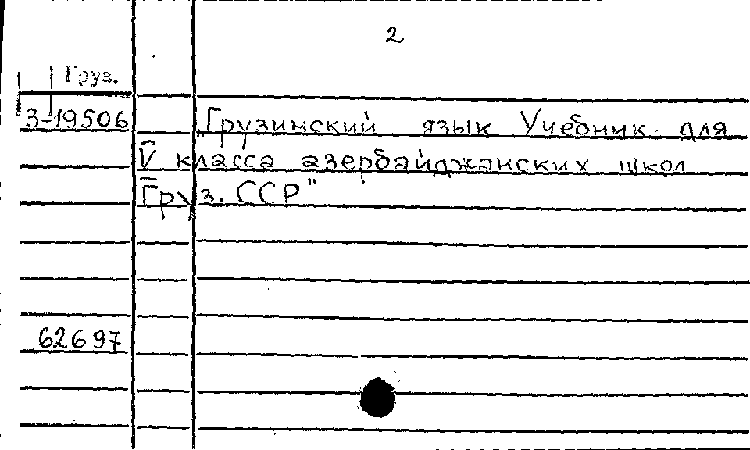 2
Груз.
3-19506
„Грузинский язык Учебник для
V класса азербайджанских школ
Груз. ССР"
62697